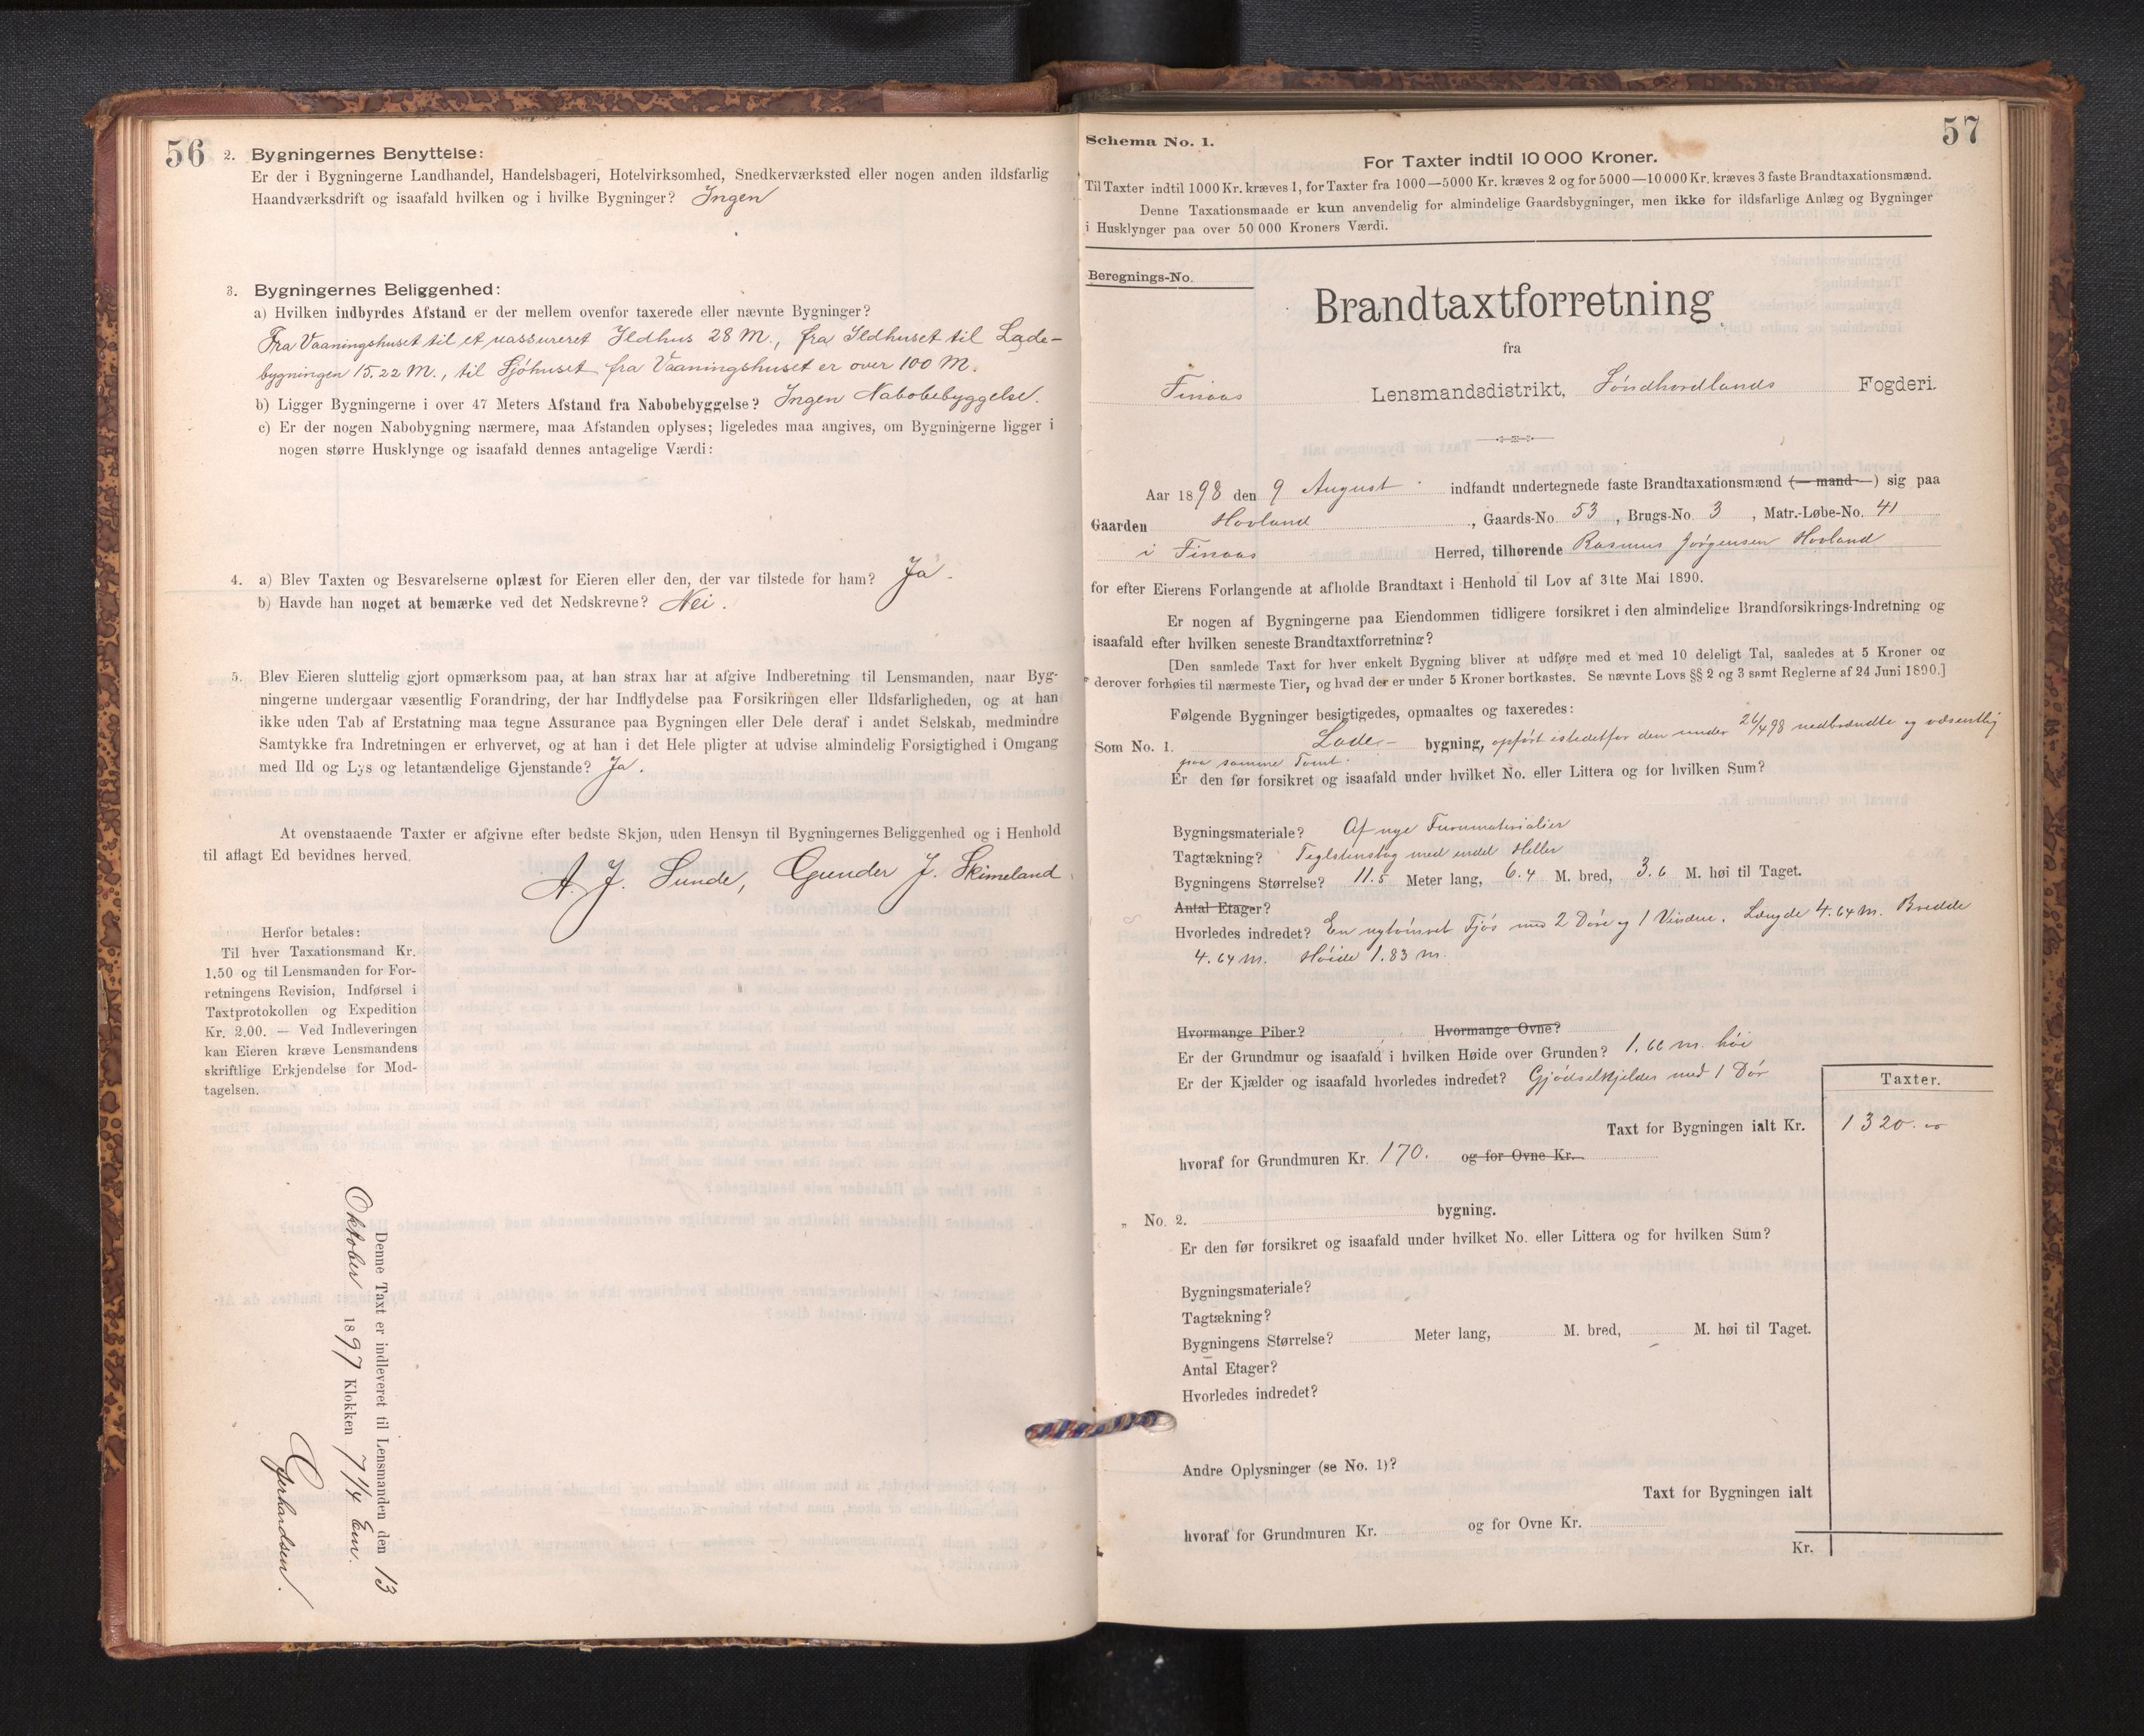 56
2. Bygningernes Benyttelse:
Er der i Bygningerne Landhandel, Handelsbageri, Hotelvirksomhed, Snedkerværksted eller nogen anden ildsfarlig
Haandværksdrift og isaafald hvilken og i hvilke Bygninger? Ingen
3. Bygningernes Beliggenhed:
a) Hvilken indbyrdes Afstand er der mellem ovenfor taxerede eller nævnte Bygninger?
Fra Vaaningshuset til et uassureret Ildhus 28 M., fra Ildhuset til Lade-
bygningen 15.22 M., til Sjöhuset fra Vaaningshuset er over 100 M.
b) Ligger Bygningerne i over 47 Meters Afstand fra Nabobebyggelse? Ingen Nabobebyggelse.
c) Er der nogen Nabobygning nærmere, maa Afstanden oplyses; ligeledes maa angives, om Bygningerne ligger i
nogen større Husklynge og isaafald dennes antagelige Værdi:
4. a) Blev Taxten og Besvarelserne oplæst for Eieren eller den, der var tilstede for ham? Ja.
b) Havde han noget at bemærke ved det Nedskrevne? Nei.
5. Blev Eieren sluttelig gjort opmærksom paa, at han strax har at afgive Indberetning til Lensmanden, naar Byg-
ningerne undergaar væsentlig Forandring, der har Indflydelse paa Forsikringen eller Ildsfarligheden, og at han
ikke uden Tab af Erstatning maa tegne Assurance paa Bygningen eller Dele deraf i andet Selskab, medmindre
Samtykke fra Indretningen er erhvervet, og at han i det Hele pligter at udvise almindelig Forsigtighed i Omgang
med Ild og Lys og letantændelige Gjenstande? Ja.
At ovenstaaende Taxter er afgivne efter bedste Skjøn, uden Hensyn til Bygningernes Beliggenhed og i Henhold
til aflagt Ed bevidnes herved.
A. J. Sunde, Gunder J. Skimeland
Herfor betales:
Til hver Taxationsmand Kr.
1.50 og til Lensmanden for For-
retningens Revision, Indførsel i
Taxtprotokollen og Expedition
Kr. 2.00. — Ved Indleveringen
kan Eieren kræve Lensmandens
skriftlige Erkjendelse for Mod-
tagelsen.
Denne Taxt er indleveret til Lensmanden den 13
Oktober 1897 Klokken 7 1/4 Em.
Gjerhardsen.
57
Schema No. 1.
For Taxter indtil 10 000 Kroner.
Til Taxter indtil 1000 Kr. kræves 1, for Taxter fra 1000—5000 Kr. kræves 2 og for 5000—10 000 Kr. kræves 3 faste Brandtaxationsmænd.
Denne Taxationsmaade er kun anvendelig for almindelige Gaardsbygninger, men ikke for ildsfarlige Anlæg og Bygninger
i Husklynger paa over 50 000 Kroners Værdi.
Beregnings-No.
Brandtaxtforretning
fra
Finaas Lensmandsdistrikt, Söndhordlands Fogderi.
Aar 1898 den 9 August indfandt undertegnede faste Brandtaxationsmænd (— mand —) sig paa
Gaarden Hovland, Gaards-No. 53, Brugs-No. 3, Matr.-Løbe-No. 41
i Finaas Herred, tilhørende Rasmus Jörgensen Hovland
for efter Eierens Forlangende at afholde Brandtaxt i Henhold til Lov af 31te Mai 1890.
Er nogen af Bygningerne paa Eiendommen tidligere forsikret i den almindelige Brandforsikrings-Indretning og
isaafald efter hvilken seneste Brandtaxtforretning?
[Den samlede Taxt for hver enkelt Bygning bliver at udføre med et med 10 deleligt Tal, saaledes at 5 Kroner og
derover forhøies til nærmeste Tier, og hvad der er under 5 Kroner bortkastes. Se nævnte Lovs §§ 2 og 3 samt Reglerne af 24 Juni 1890.]
Følgende Bygninger besigtigedes, opmaaltes og taxeredes:
Som No. 1. Lade- bygning, opfört istedetfor den under 26/4 98 nedbrændte og væsentlig
paa samme Tomt.
Er den før forsikret og isaafald under hvilket No. eller Littera og for hvilken Sum?
Bygningsmateriale? Af nye Furumaterialier
Tagtækning? Teglstenstag med endel Heller
Bygningens Størrelse? 11.5 Meter lang, 6.4 M. bred, 3.6 M. høi til Taget.
Antal Etager?
Hvorledes indredet? En nytömret Fjös med 2 Döre og 1 Vindue. Længde 4.64 m. Bredde
4.64 m. Höide 1.83 m.
Hvormange Piber? Hvormange Ovne?
Er der Grundmur og isaafald i hvilken Høide over Grunden? 1.66 m. höi
Er der Kjælder og isaafald hvorledes indredet? Gjödselkjelder med 1 Dör
Taxter.
Taxt for Bygningen ialt Kr. 1320.00
hvoraf for Grundmuren Kr. 170. og for Ovne Kr.
„ No. 2. bygning.
Er den før forsikret og isaafald under hvilket No. eller Littera og for hvilken Sum?
Bygningsmateriale?
Tagtækning?
Bygningens Størrelse? Meter lang, M. bred, M. høi til Taget.
Antal Etager?
Hvorledes indredet?
Andre Oplysninger (se No. 1)?
Taxt for Bygningen ialt
hvoraf for Grundmuren Kr. og for Ovne Kr.
Kr.